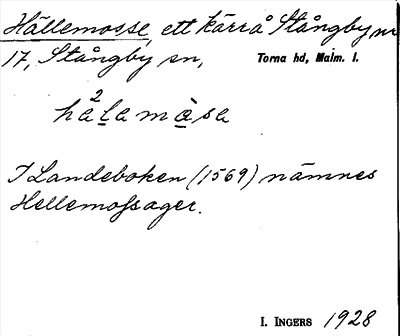 Hällemosse, ett kärr å Stångby nr
17, Stångby sn, Torna hd, Malm. l.
hä²lamåsa
I Landeboken (1569) nämnes
Hellemossager.
I. INGERS 1928